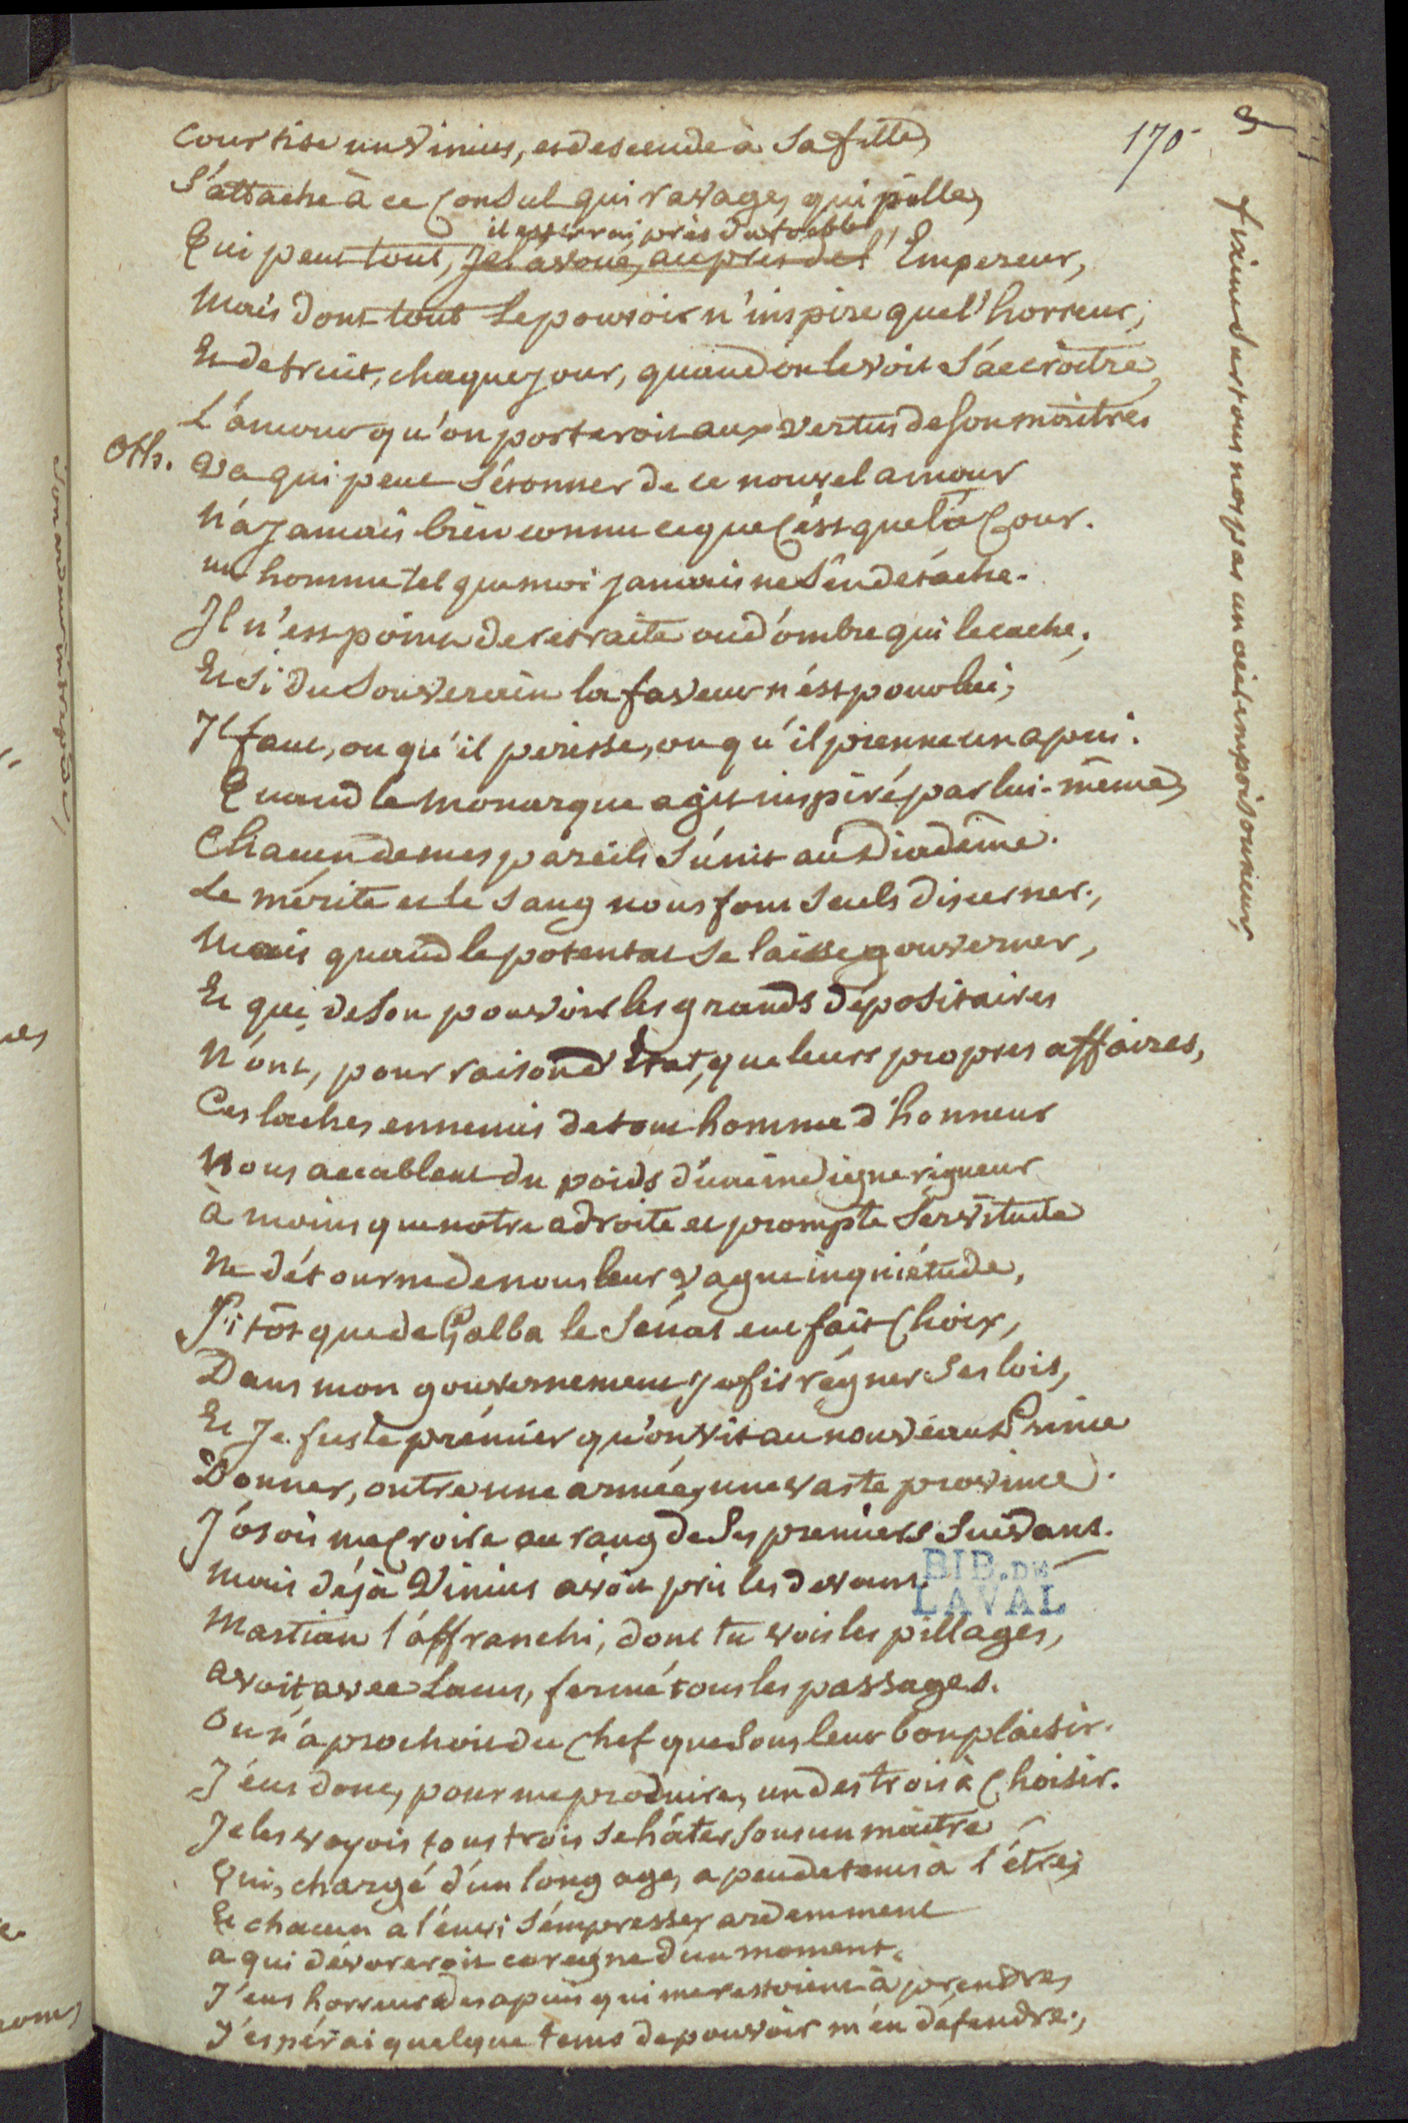 3
170
Courtise un Vinius, et descende à sa fille,
S'attache à ce Consul qui ravage, qui pille,
il est vrai, près du foible
Qui peut tout, Je l'avoue, auprès de l' Empereur,
Mais dont tout le pouvoir n'inspire que l'horreur,
Et detruit, chaque jour, quand on le voit s'accroitre,
L'amour qu'on porteroit aux vertus de son maitre.
Oth. Va qui peut s'étonner de ce nouvel amour
N'a jamais bien connu ce que c'est que la Cour.
un homme tel que moi jamais ne s'en detache.
Il n'est point de retraite ou d'ombre qui le cache;
Et si du Souverain la faveur n'est pour lui,
Il faut, ou qu'il perisse, ou qu'il prenne un apui.
Quand le monarque agit inspiré par lui-même,
Chacun de mes pareils s'unit au Diadême.
Le mérite et le sang nous font seuls discerner;
Mais quand le potentat se laisse gouverner,
Et que, de son pouvoir les grands dépositaires
N'ont, pour raison d'Etat, que leurs propres affaires,
Ces laches ennemis de tout homme d'honneur
Nous accablent du poids d'une indigne rigueur
à moins que notre adroite et prompte servitude
Ne détourne de nous leur vague inquiétude,
Sitôt que de Galba le Sénat eut fait choix,
Dans mon gouvernement je fis régner ses lois,
Et Je fus le prémier qu'on vit au nouveau Prince
Donner, outre une armée, une vaste province.
J'osois me croire au rang de ses premiers suivans.
Mais déjà Vinius avoit pris les devans.
Martian l'affranchi, dont tu vois les pillages,
avoit, avec Lacus, fermé tous les passages.
On n'aprochoit du Chef que sous leur bon plaisir.
J'eus donc, pour me produire, un des trois à choisir.
Je les voyois tous trois se hâter sous un maître
Qui, chargé d'un long age, a peu de tems à l'être;
Et chacun à l'envi s'empresser ardemment
a qui dévoreroit ce regne d'un moment.
J'eus horreur des apuis qui me restoient à prendre;
J'espérai quelque tems de pouvoir m'en défendre;
BIB. DE
LAVAL
sur tous nos pas un oeil empoisonneur,